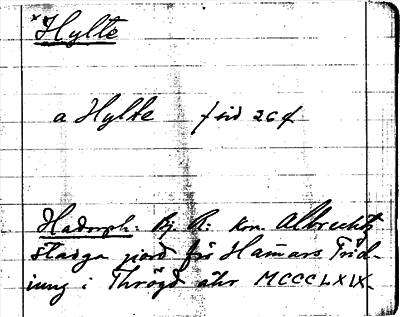 *Hylte
a Hylte / sid 26 /
Hadorph: Bj. R: kon. Albrechtz
stadga giord för Hamars Trid-
iung i Thrögd åhr MCCCLXIX.